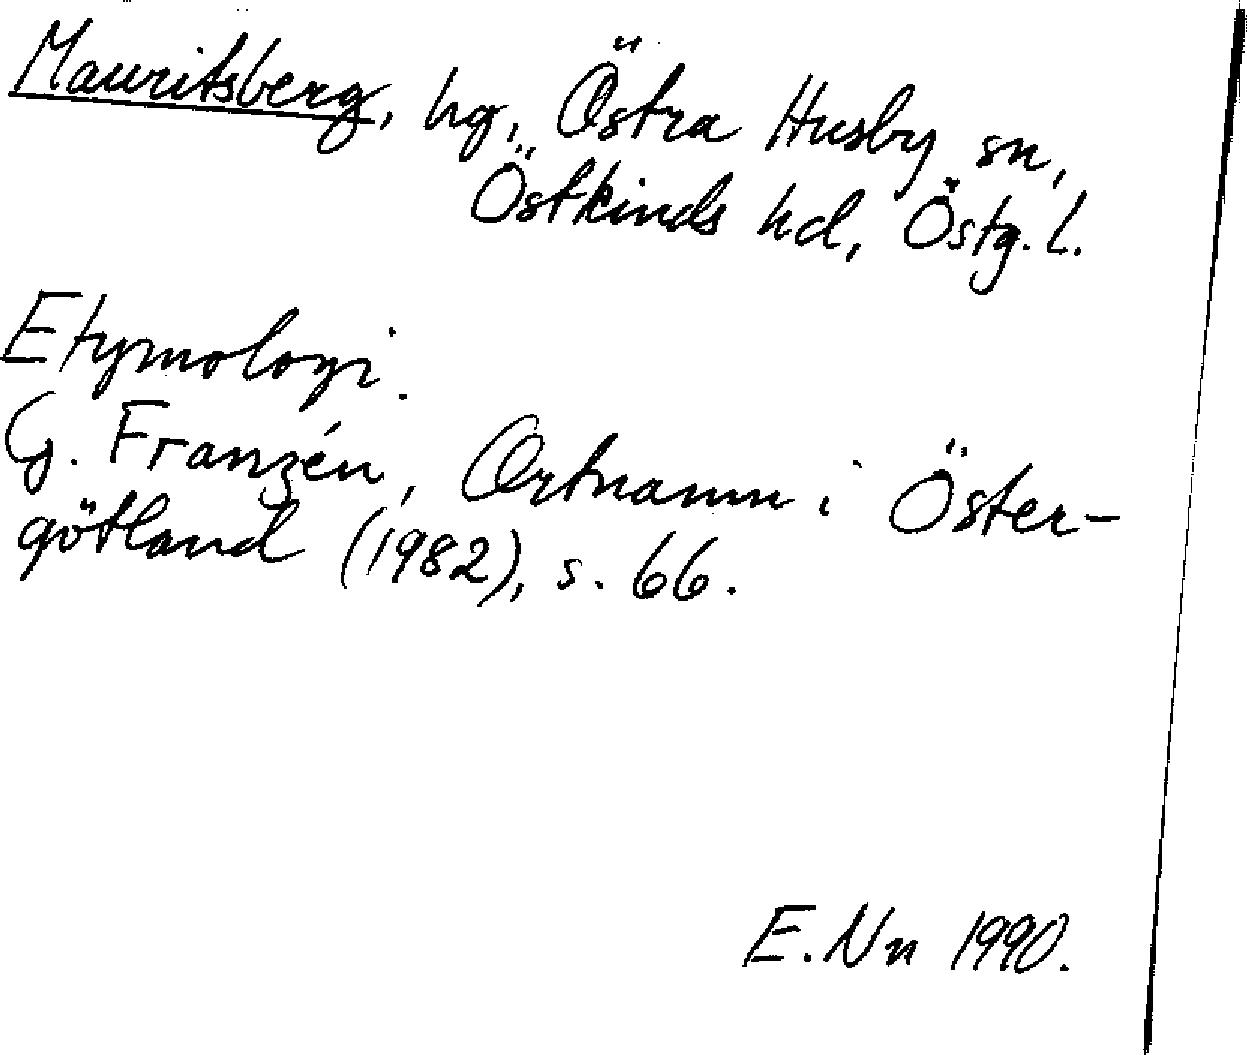 Mauritsberg, hg, Östra Husby sn,
Östkinds hd, Östg. l.
Etymologi.
G. Franzén, Ortnamn i Öster-
götland (1982), s. 66.
E. Nn 1990.